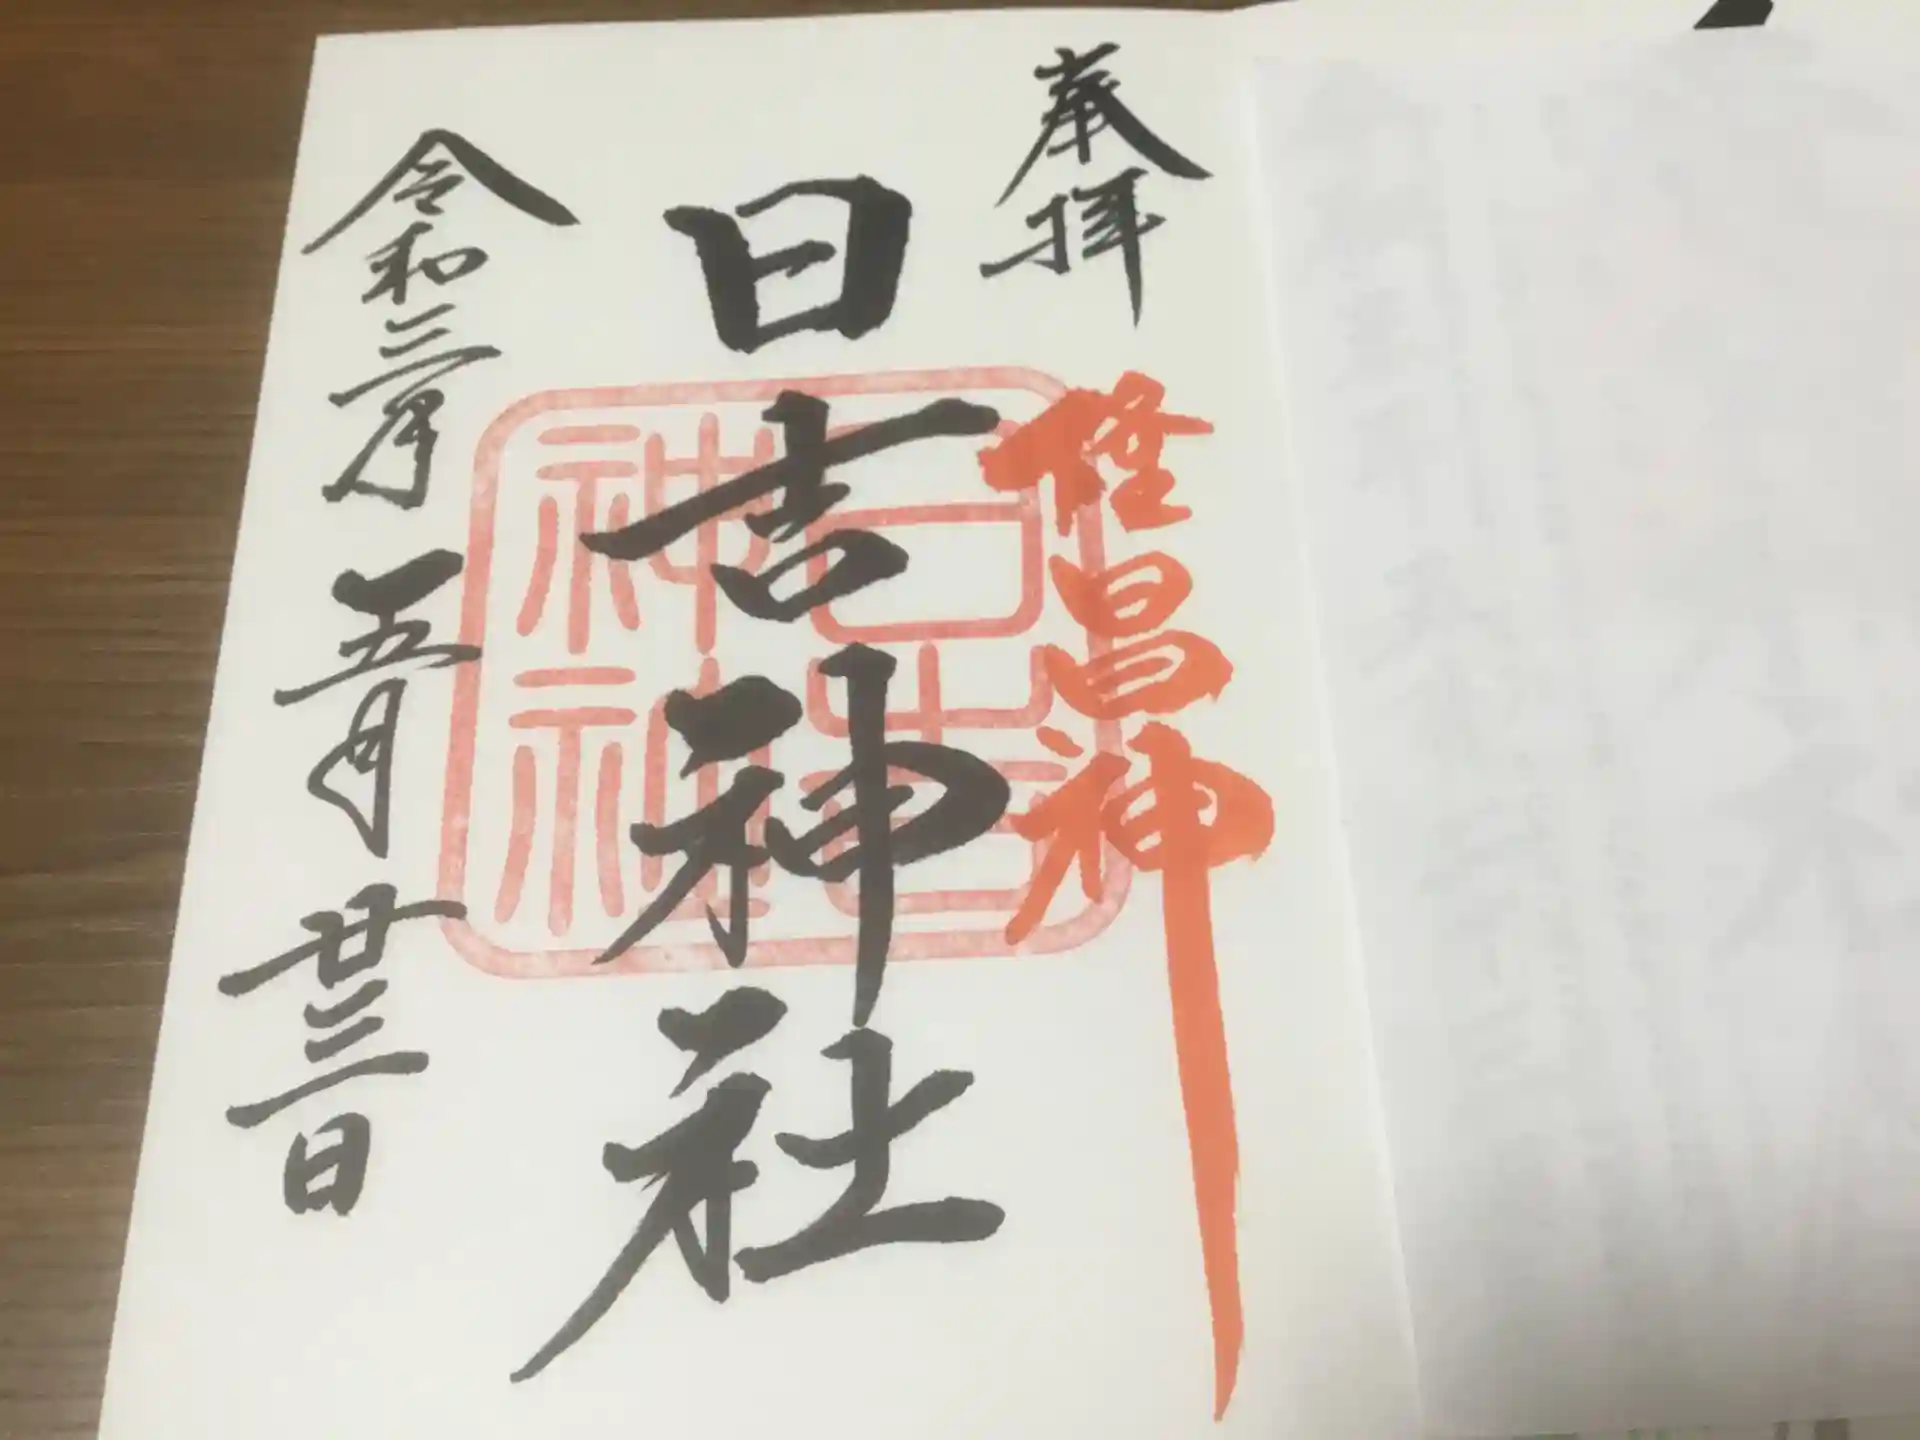 奉拝
隆昌神
日吉神社
日吉
神社
令和三年
五月
廿三日